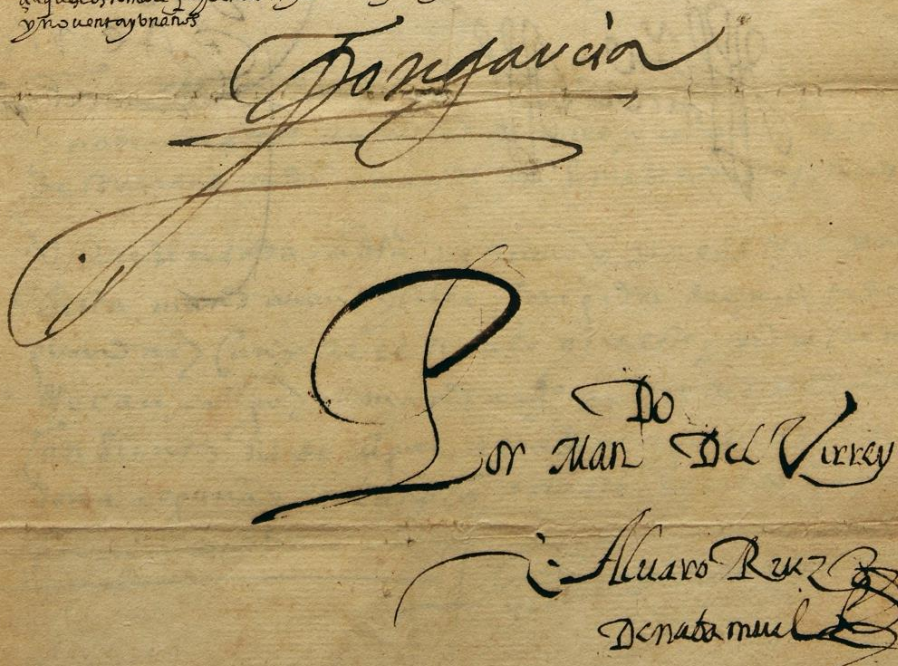 y noventa y un años
Don garcia
Do
Por Man Del Virrey
Alvaro Ruiz
De nabamuel